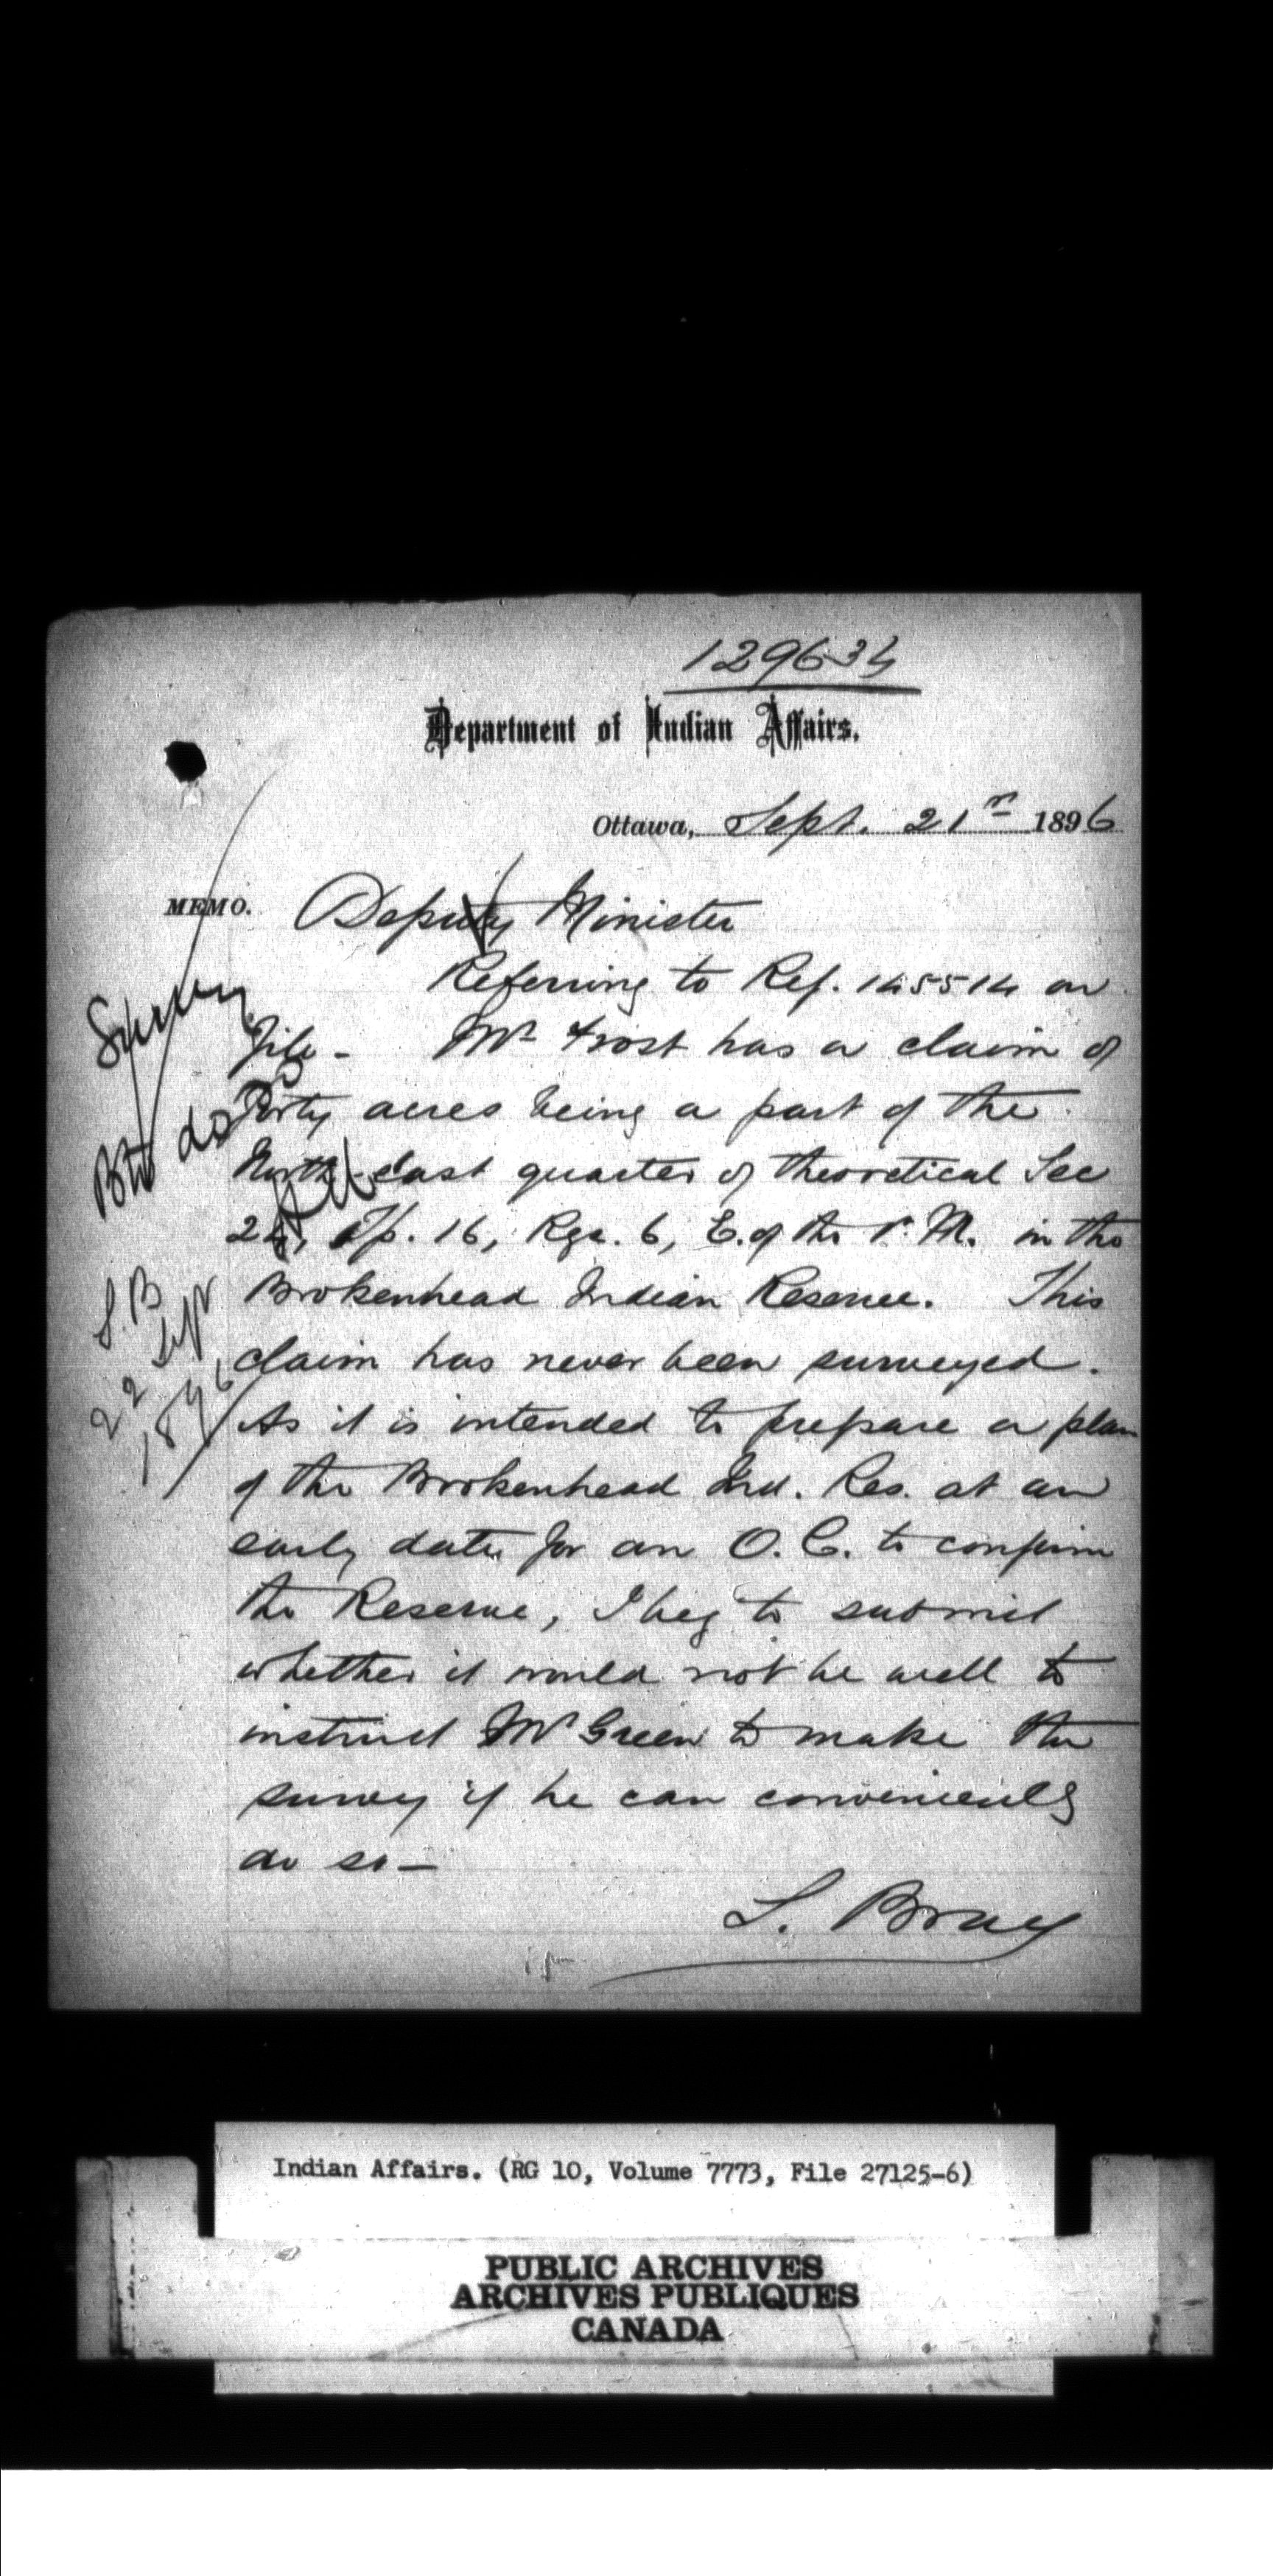 129634
Department of Indian Affairs.
Ottawa, Sept. 21st 1896
MEMO.
Deputy Minister
Referring to Ref. 145514 on
File - Mr Frost has a claim of
Forty acres being a part of the
North-East quarter of theoretical Sec
24, Tp. 16, Rge. 6, E. of the P. M. in the
Brokenhead Indian Reserve. This
claim has never been surveyed.
As it is intended to prepare a plan
of the Brokenhead Ind. Res. at an
early date for an O. C. to confirm
the Reserve, I beg to submit
whether it would not be well to
instruct Mr Green to make the
survey if he can conveniently
do so—
S. Bray
Survey
do so
S.B
22 Sept
1896
Indian Affairs. (RG 10, Volume 7773, File 27125-6)
PUBLIC ARCHIVES
ARCHIVES PUBLIQUES
CANADA